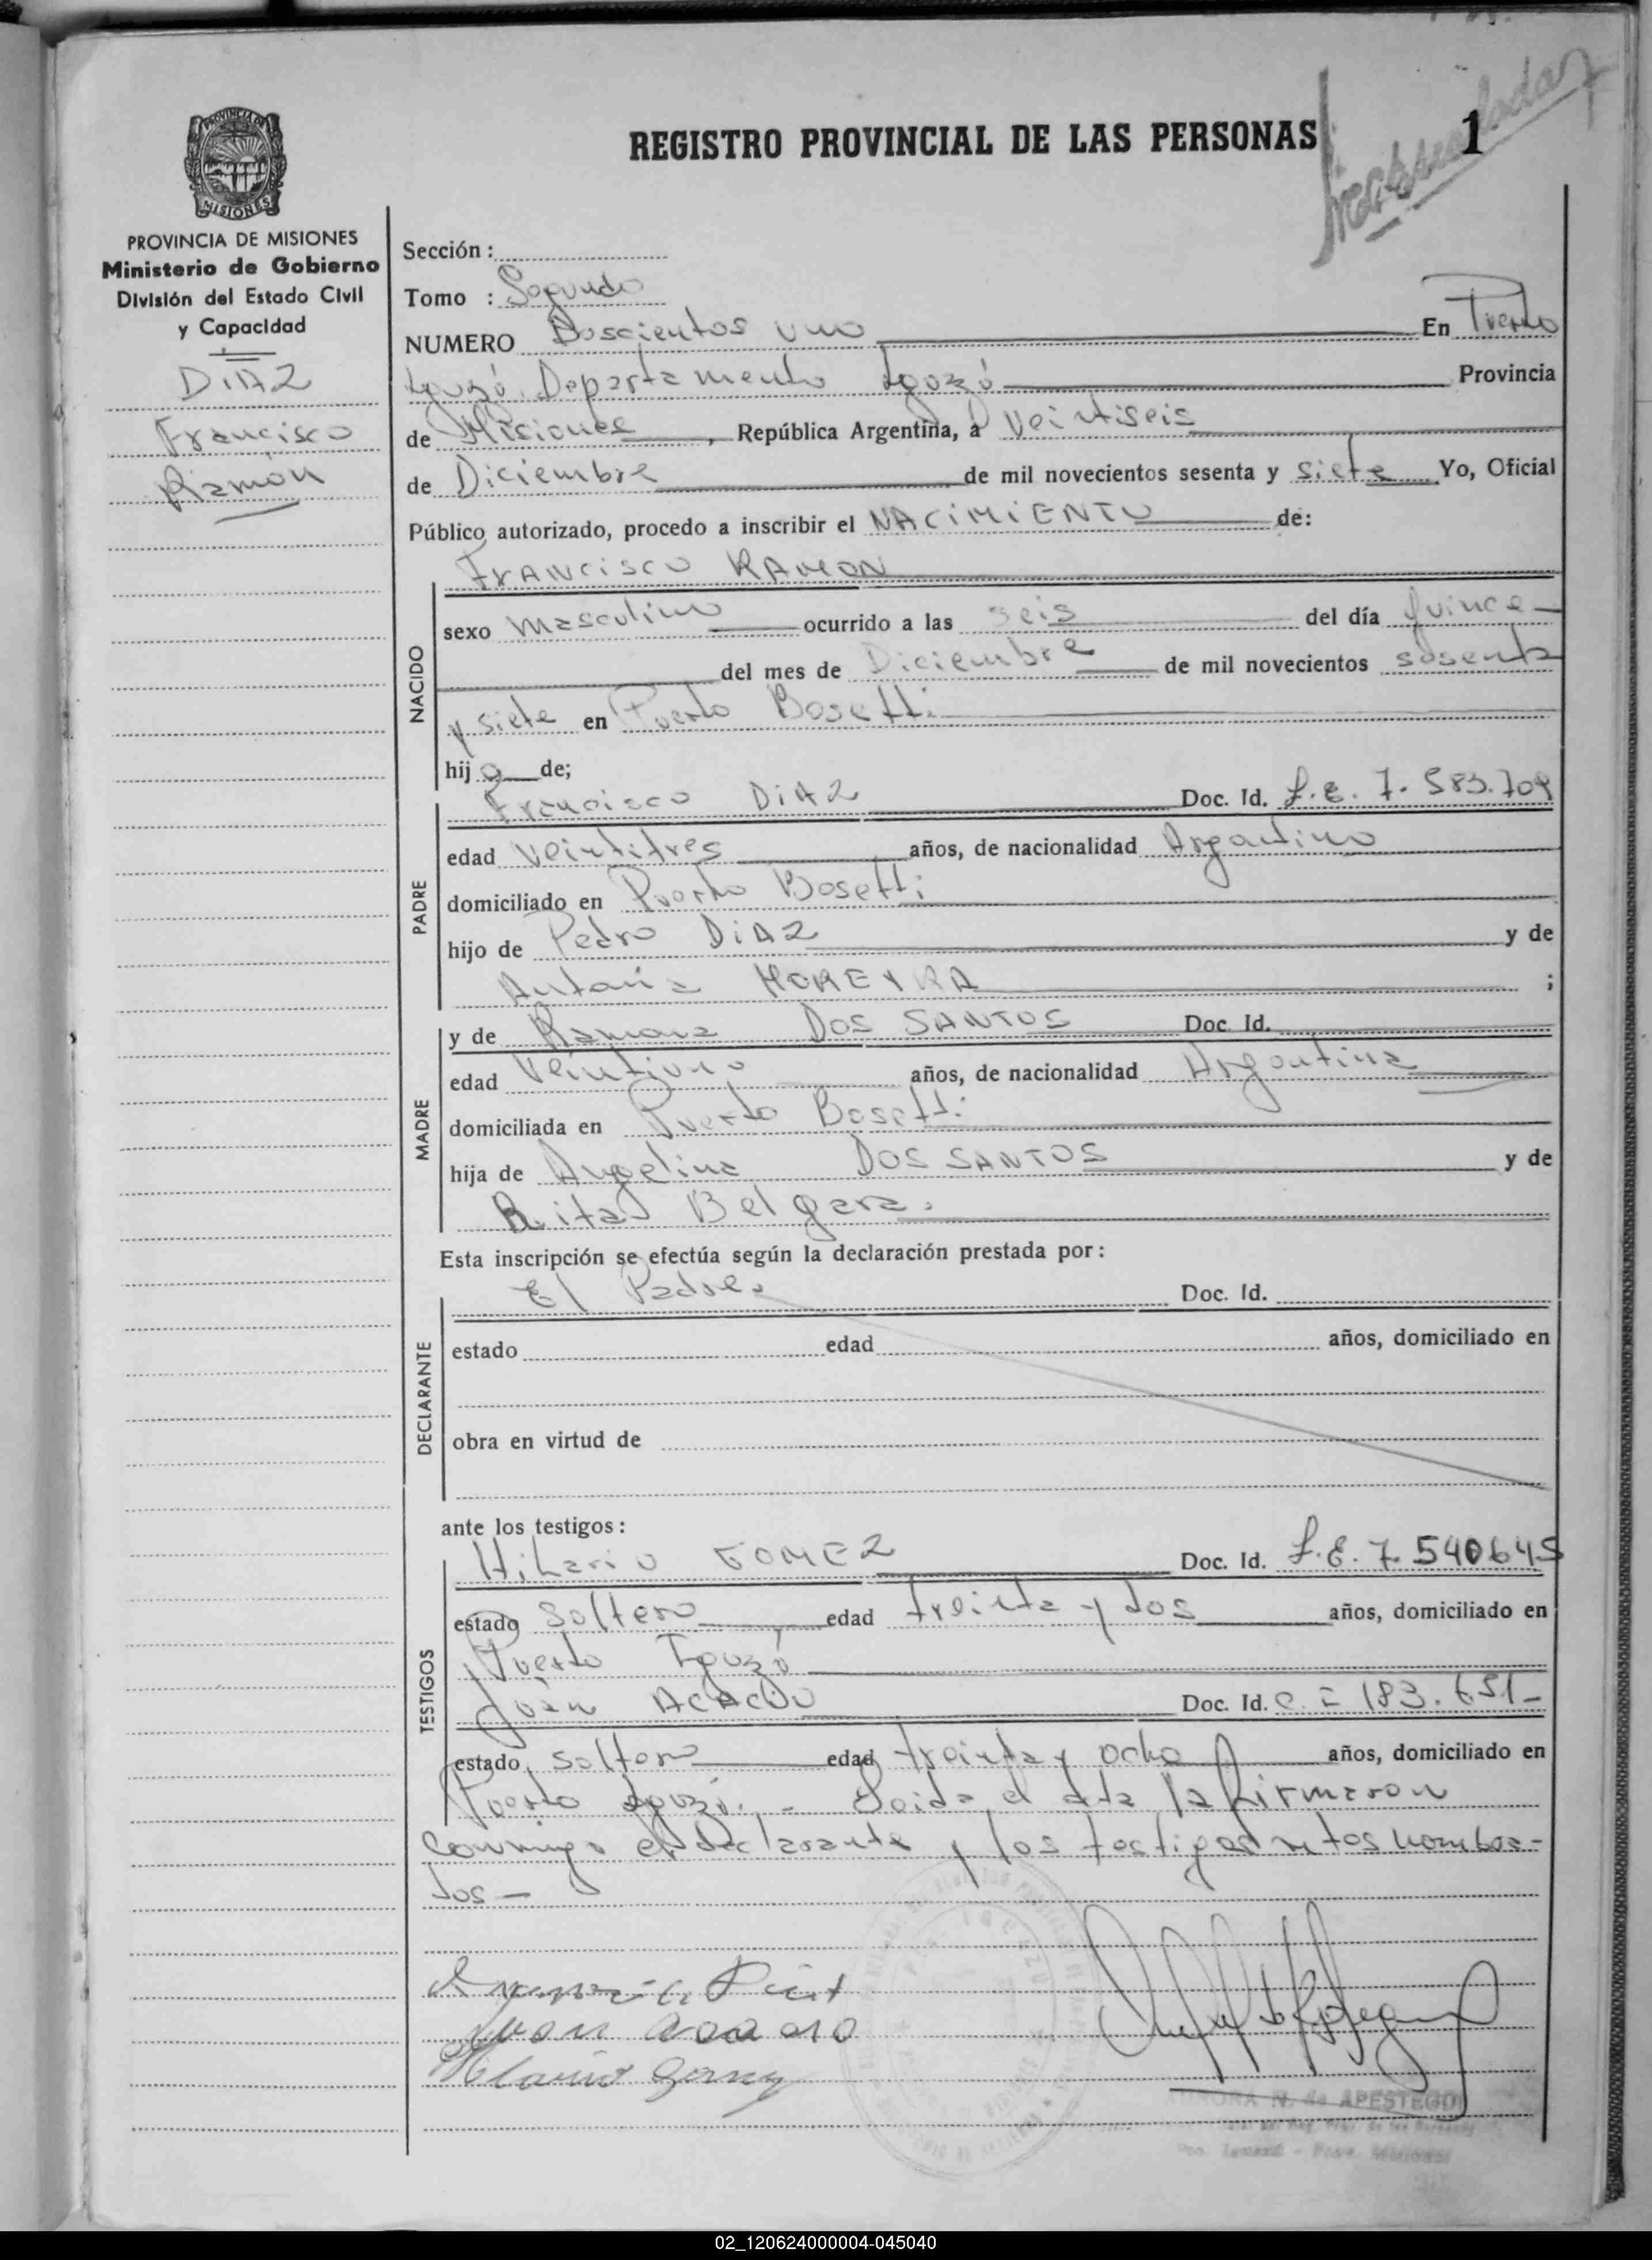 REGISTRO PROVINCIAL DE LAS PERSONAS
1
PROVINCIA DE MISIONES
PROVINCIA DE MISIONES
Ministerio de Gobierno
División del Estado Civil
y Capacidad
DIAZ
Francisco
Ramón
Sección :
Tomo : Segundo
NUMERO Doscientos uno En Puerto
Iguazú, Departamento Iguazú Provincia
de Misiones, República Argentina, a Veintiseis
de Diciembre de mil novecientos sesenta y siete Yo, Oficial
Público autorizado, procedo a inscribir el NACIMIENTO de:
FRANCISCO RAMON
NACIDO
sexo masculino ocurrido a las seis del día quince
del mes de Diciembre de mil novecientos sesenta
y siete en Puerto Bosetti
hijo de;
PADRE
Francisco DIAZ Doc. Id. L.E. 7.583.709
edad veintitres años, de nacionalidad Argentino
domiciliado en Puerto Bosetti
hijo de Pedro DIAZ y de
Antonia MOREYRA ;
MADRE
y de Ramona DOS SANTOS Doc. Id.
edad Veintiuno años, de nacionalidad Argentina
domiciliada en Puerto Bosetti
hija de Angelino DOS SANTOS y de
Rita Belgara.
Esta inscripción se efectúa según la declaración prestada por:
DECLARANTE
El Padre. Doc. Id.
estado edad años, domiciliado en
obra en virtud de
ante los testigos:
TESTIGOS
Hilario GOMEZ Doc. Id. L.E. 7.540645
estado soltero edad treinta y dos años, domiciliado en
Puerto Iguazú
Juan ACACIO Doc. Id. C. I. 183.651
estado soltero edad treinta y ocho años, domiciliado en
Puerto Iguazú. - Leida el acta la firmaron
conmigo el declarante y los testigos nombra-
dos -
NORA N. de APESTEGUI
02_120624000004-045040